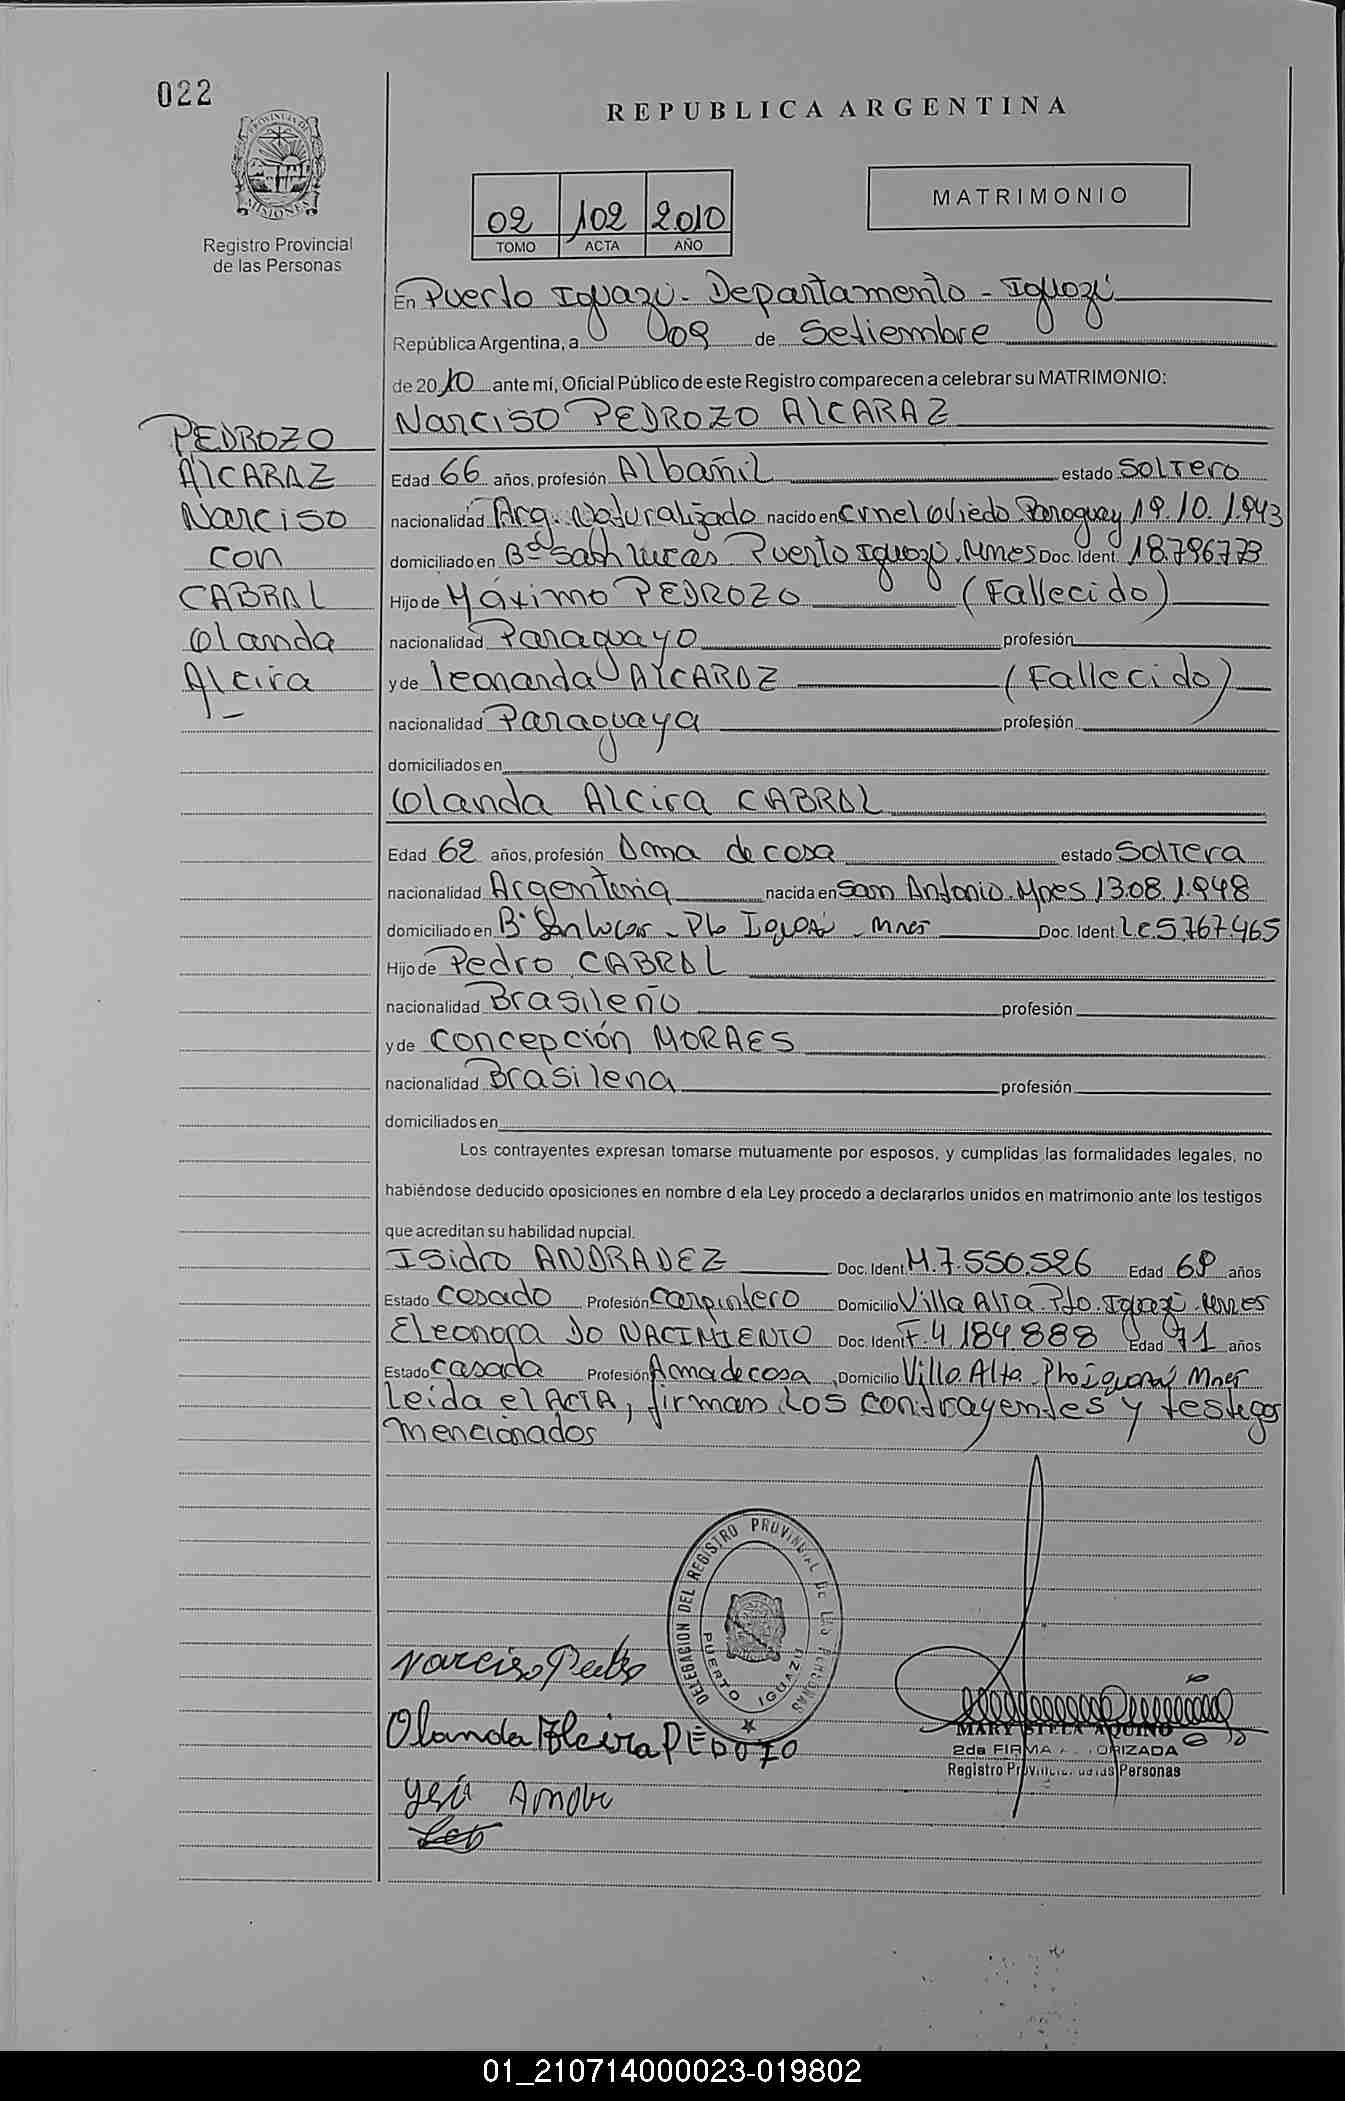 022
REPUBLICA ARGENTINA
PROVINCIA DE
MISIONES
Registro Provincial
de las Personas
02 102 2010
TOMO ACTA AÑO
MATRIMONIO
En Puerto Iguazú - Departamento - Iguazú
República Argentina, a 09 de Setiembre
de 2010 ante mí, Oficial Público de este Registro comparecen a celebrar su MATRIMONIO:
PEDROZO
ALCARAZ
Narciso
con
CABRAL
Olanda
Alcira
Narciso PEDROZO ALCARAZ
Edad 66 años, profesión Albañil estado Soltero
nacionalidad Arg. Naturalizado nacido en Crnel Oviedo Paraguay 19.10.1.943
domiciliado en Bº San Lucas Puerto Iguazú. Mnes Doc. Ident. 18.796.773
Hijo de Máximo PEDROZO (Fallecido)
nacionalidad Paraguayo profesión
y de Leonarda ALCARAZ (Fallecido)
nacionalidad Paraguaya profesión
domiciliados en
Olanda Alcira CABRAL
Edad 62 años, profesión Ama de casa estado Soltera
nacionalidad Argentina nacida en San Antonio. Mnes 13.08.1.948
domiciliado en Bº San Lucas - Pto Iguazú - Mnes Doc. Ident. L.C 5.767.465
Hijo de Pedro CABRAL
nacionalidad Brasileño profesión
y de Concepción MORAES
nacionalidad Brasilena profesión
domiciliados en
Los contrayentes expresan tomarse mutuamente por esposos, y cumplidas las formalidades legales, no
habiéndose deducido oposiciones en nombre d ela Ley procedo a declararlos unidos en matrimonio ante los testigos
que acreditan su habilidad nupcial.
Isidro ANDRADEZ Doc. Ident. M.7.550.526 Edad 68 años
Estado Casado Profesión Carpintero Domicilio Villa Alta. Pto. Iguazú. Mnes
Eleonora DO NACIMIENTO Doc. Ident F. 4.184.888 Edad 71 años
Estado casada Profesión Ama de casa Domicilio Villa Alta Pto Iguazú Mnes
Leida el ACTA, firman los contrayentes y testigos
mencionados
DELEGACION DEL REGISTRO PROVINCIAL DE LAS PERSONAS
PUERTO IGUAZU
Narciso Pedrozo
Olanda Alcira PEDOZO
MARY STELA AQUINO
2da FIRMA AUTORIZADA
Registro Provincial de las Personas
01_210714000023-019802